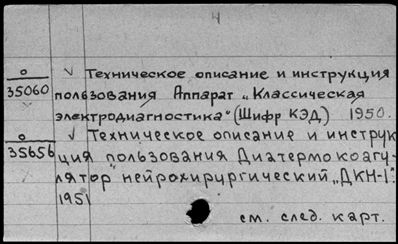 4
о
35060
√ Техническое описание и инструкция
пользования Аппарат „Классическая
электродиагностика" (Шифр КЭД) 1950.
о
35656
√ Техническое описание и инструк-
ция пользования Диатермокоагу-
лятор нейрохирургический „ДКН-1".
1951
см. след. карт.